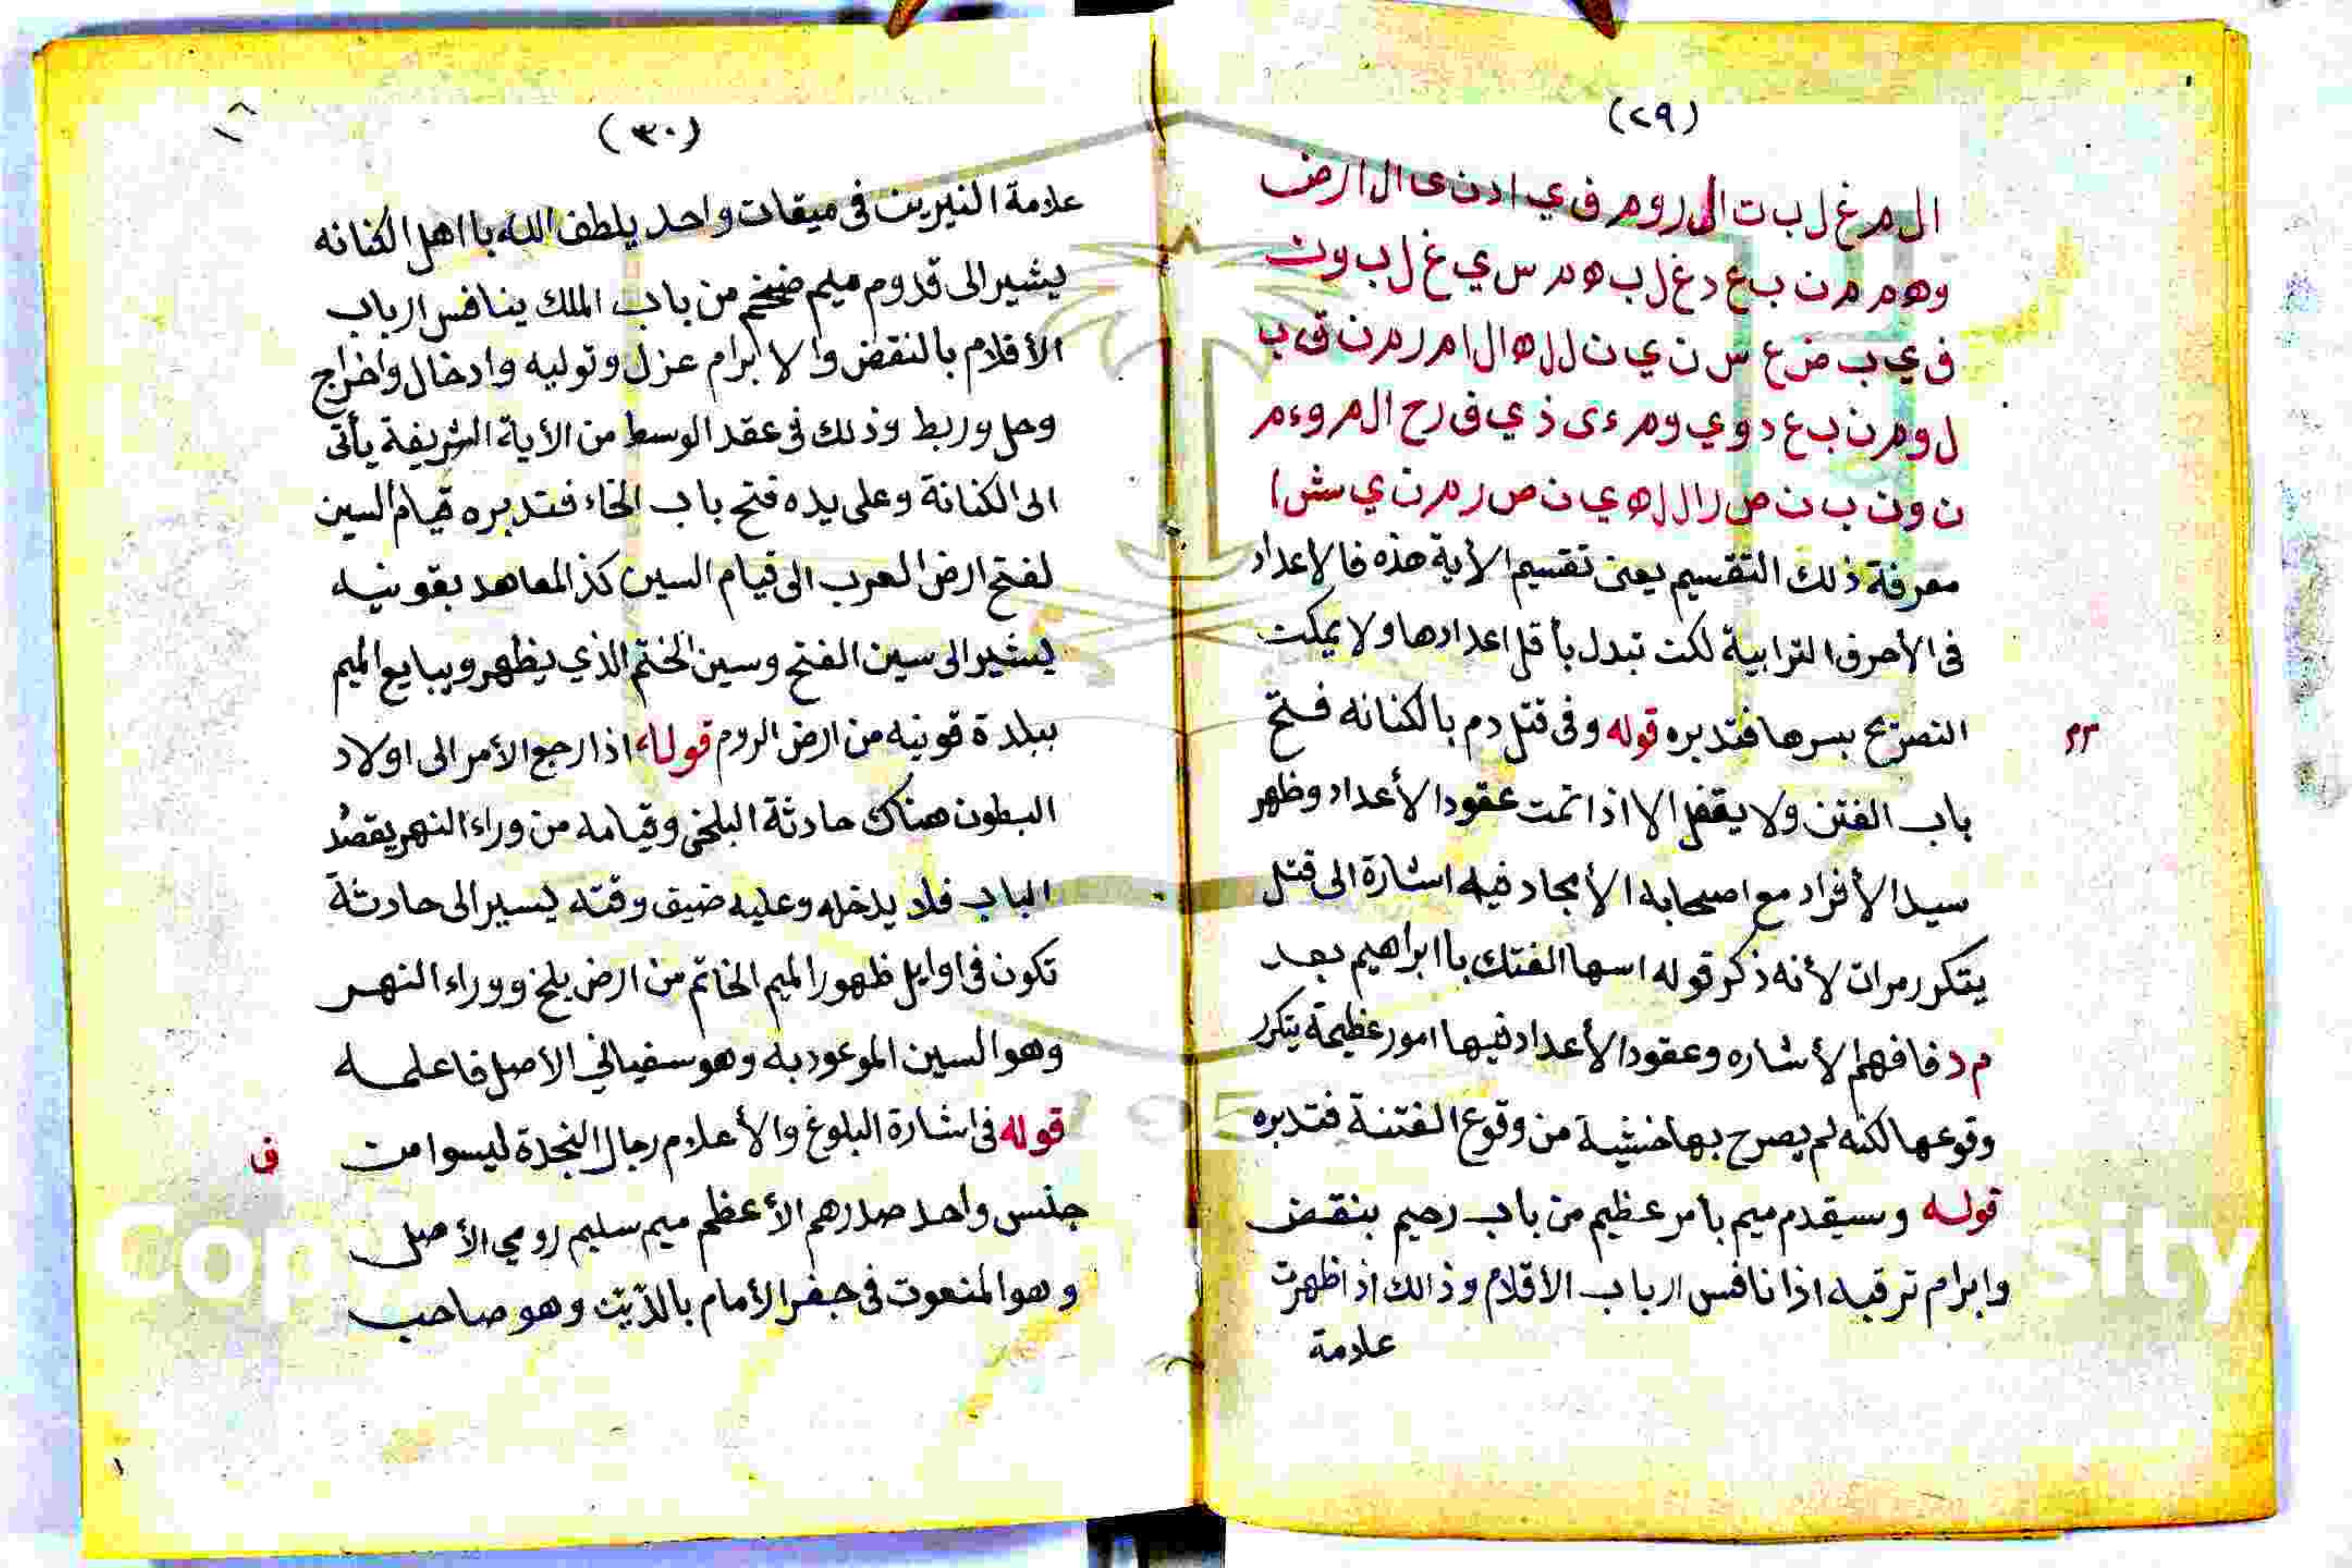 (٢٩)
ال م غ ل ب ت ال ر و م ف ي ا د ن ى ال ا ر ض
و ه م م ن ب ع د غ ل ب ه م س ي غ ل ب و ن
ف ي ب ض ع س ن ي ن ل ل ه ال ا م ر م ن ق ب
ل و م ن ب ع د و ي و م ء ى ذ ي ف ر ح ال م و ء م
ن و ن ب ن ص ر ال ل ه ي ن ص ر م ن ي ش ا
معرفة ذلك التقسيم يعنى تقسيم الأية هذه فالاعداد
فى الأحرف الترابية لكن تبدل بأقل اعدادها ولا يمكن
التصريح بسرها فتدبره قوله وفى قتل دم بالكنانه فتح
باب الفتن ولا يقفل الا اذا تمت عقود الأعداد وظهر
سيد الأفراد مع اصحابه الأمجاد فيه اشارة الى قتل
يتكرر مرات لأنه ذكر قوله اسها الفتك باابراهيم بعد
م د فافهم الأشاره وعقود الأعداد فيها امور عظيمة يتكرر
وقوعها لكنه لم يصرح بها خشية من وقوع الفتنة فتدبره
قوله وسيقدم ميم بامر عظيم من باب رحيم بنقض
وابرام ترقبه اذا نافس ارباب الاقلام وذالك اذا ظهرت
علامة
(٣٠)
علامة النيرين فى ميقات واحد يلطف الله بااهل الكنانه
يشير الى قدوم ميم ضخم من باب الملك ينافس ارباب
الأقلام بالنقض والابرام عزل وتوليه وادخال واخراج
وحل وربط وذلك فى عقد الوسط من الأية الشريفة يأتى
الى الكنانة وعلى يده فتح باب الخاء فتدبره قيام السين
لفتح ارض العرب الى قيام السين كذ المعاهد بقونيه
يشير الى سين الفتح وسين الختم الذي يظهر ويبايع الميم
ببلدة قونيه من ارض الروم قوله اذا رجع الأمر الى اولاد
البطون هناك حادثة البلخى وقيامه من وراء النهر يقصد
الباب فلا يدخله وعليه ضيق وقته يسير الى حادثة
تكون فى اوايل ظهور الميم الخاتم من ارض بلخ ووراء النهر
وهو السين الموعود به وهو سفيانى الأصل فاعلمه
قوله فى اشارة البلوغ والأعلام رجال النجدة ليسوا من
جنس واحد صدرهم الأعظم ميم سليم رومي الأصل
وهو المنعوت فى جفر الأمام وهو صاحب